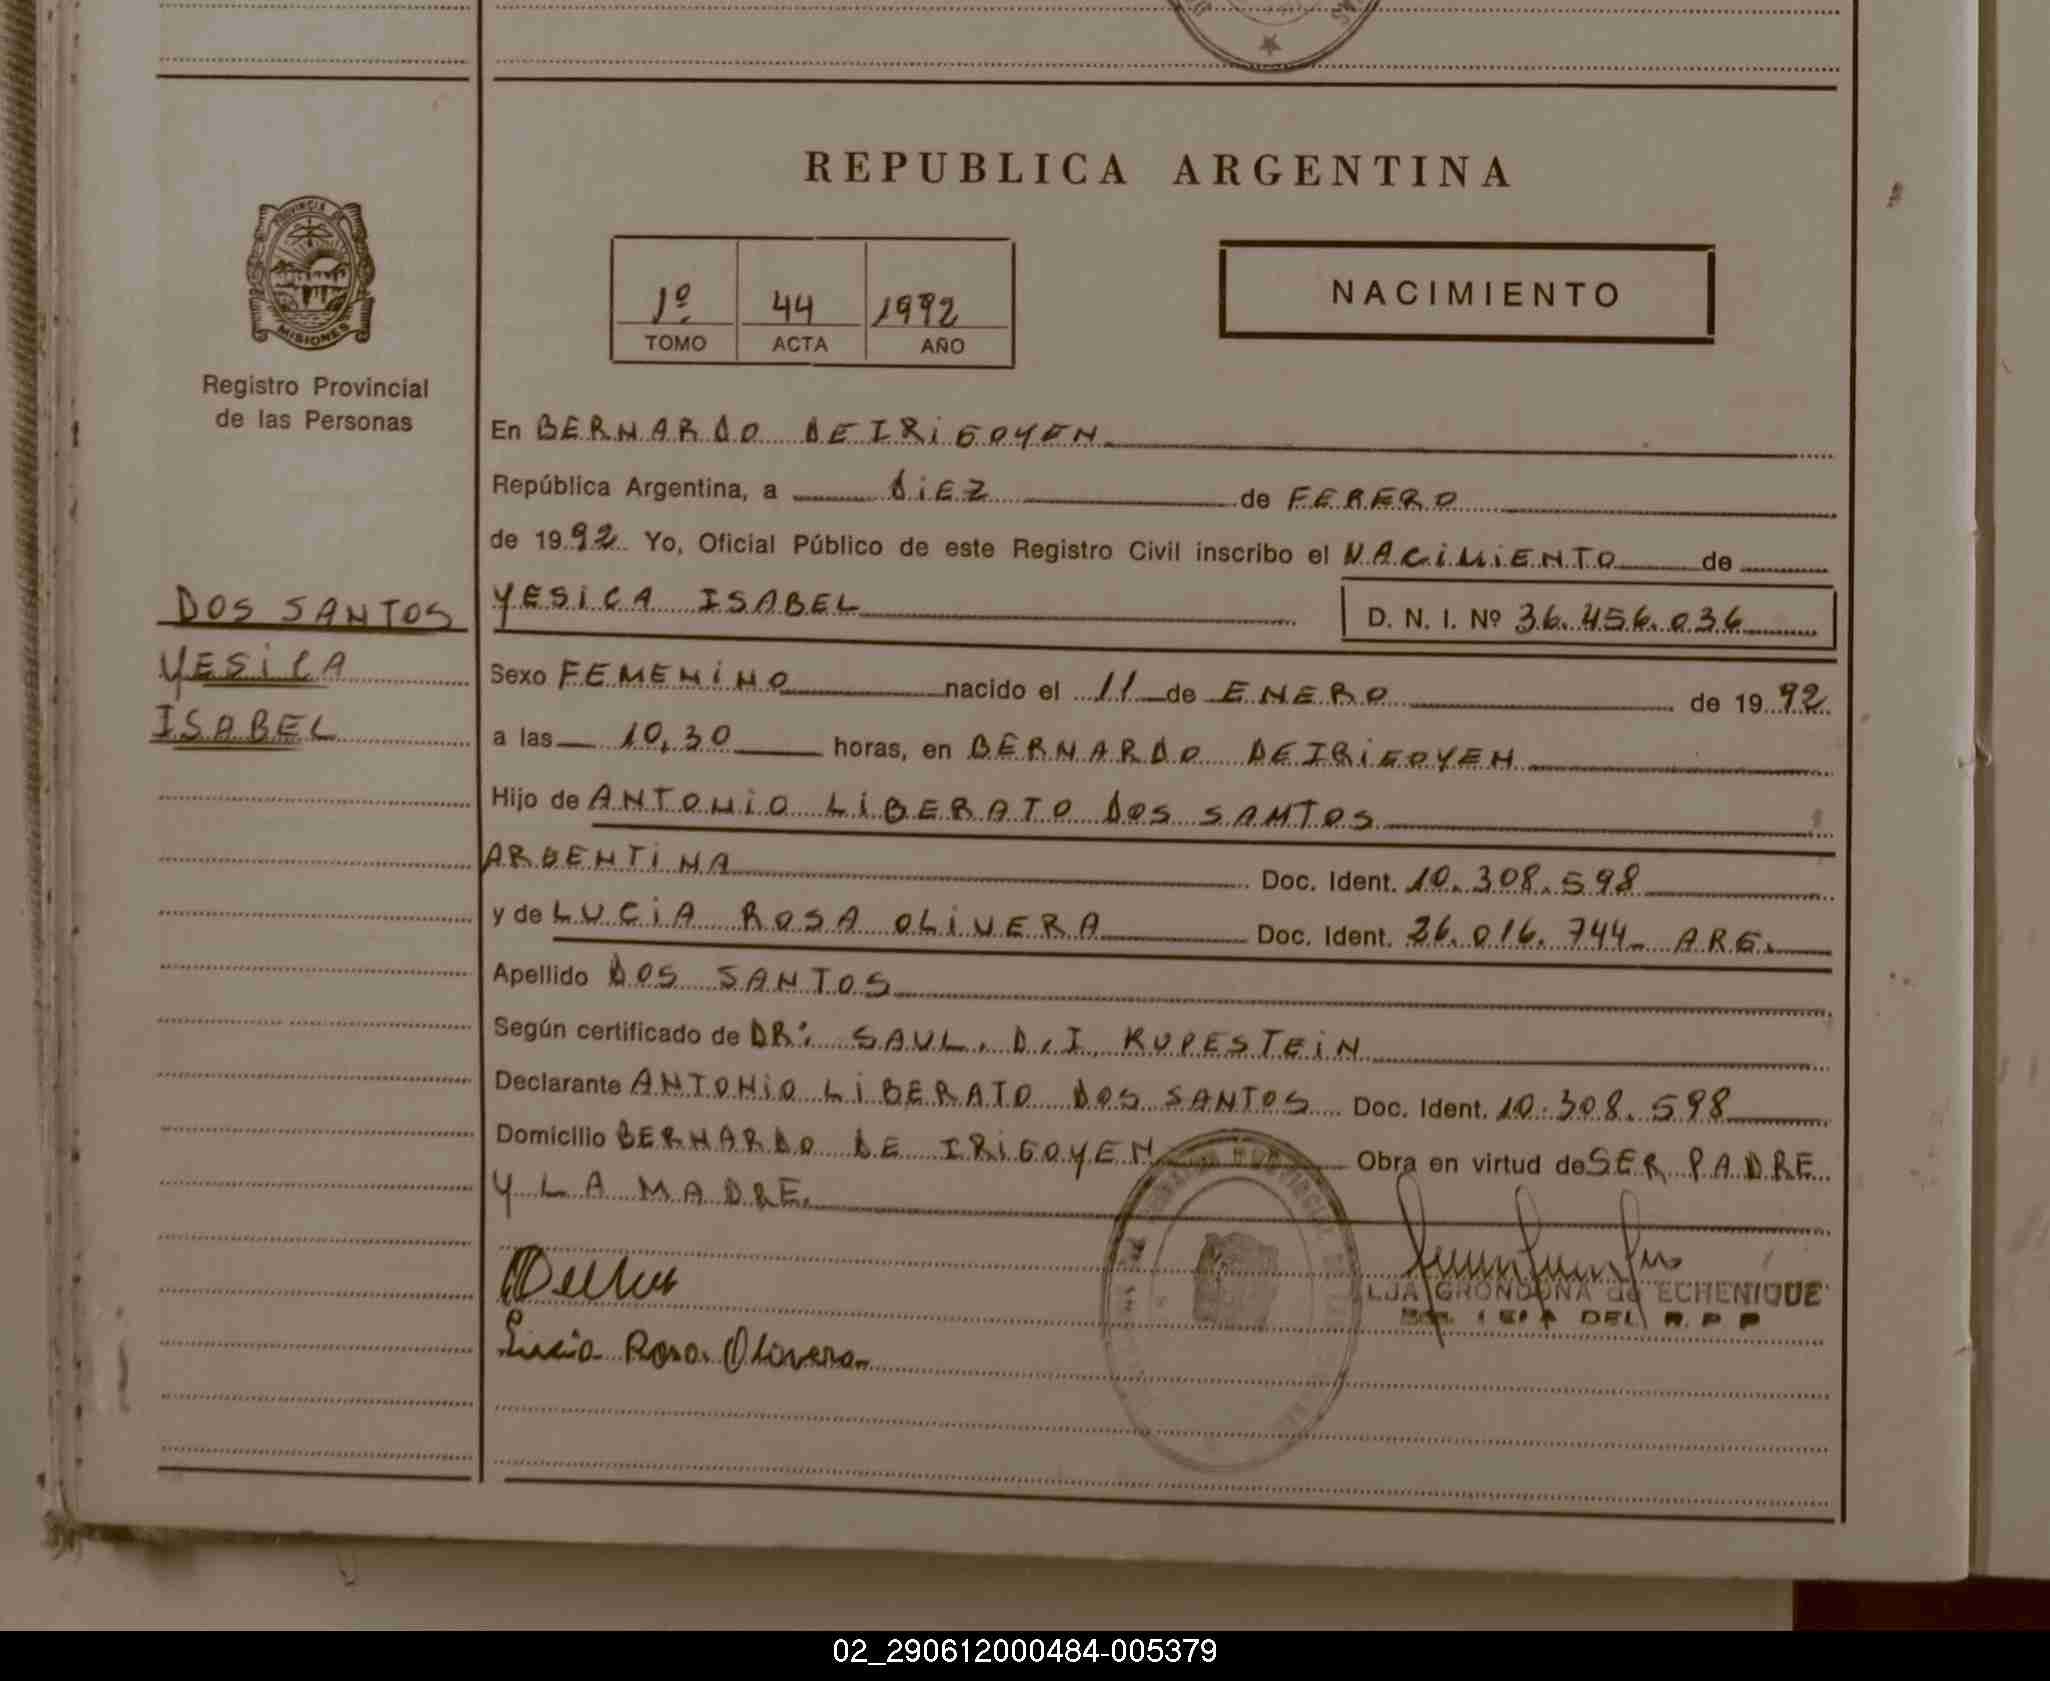 REPUBLICA ARGENTINA
PROVINCIA DE
MISIONES
Registro Provincial
de las Personas
1º 44 1992
TOMO ACTA AÑO
NACIMIENTO
DOS SANTOS
YESICA
ISABEL
En BERNARDO DE IRIGOYEN
República Argentina, a DIEZ de FEBERO
de 1992 Yo, Oficial Público de este Registro Civil inscribo el NACIMIENTO de
YESICA ISABEL D. N. I. Nº 36.456.036
Sexo FEMENINO nacido el 11 de ENERO de 1992
a las 10,30 horas, en BERNARDO DE IRIGOYEN
Hijo de ANTONIO LIBERATO DOS SANTOS
ARGENTINA Doc. Ident. 10.308.598
y de LUCIA ROSA OLIVERA Doc. Ident. 26.016.744 ARG.
Apellido DOS SANTOS
Según certificado de DR: SAUL. D.I. KUPESTEIN
Declarante ANTONIO LIBERATO DOS SANTOS Doc. Ident. 10.308.598
Domicilio BERNARDO DE IRIGOYEN Obra en virtud de SER PADRE
Y LA MADRE.
GRONDONA de ECHENIQUE
DEL R.P.P
Lucia Rosa Olivera
02_290612000484-005379